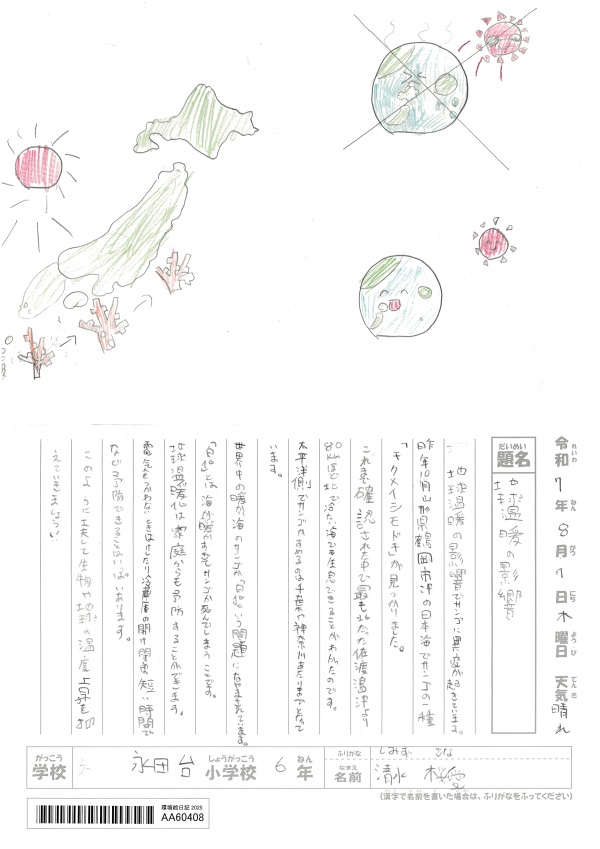 令和 7年 8月 7日 木曜日 天気 晴れ
れいわ ねん がつ にち ようび てんき
だいめい
題名
地球温暖の影響
地球温暖の影響でサンゴに異変が起きています。
昨年10月山形県鶴岡市沖の日本海でサンゴの一種
「キクメイシモドキ」が見つかりました。
これまで確認された中で最も北だった佐渡温沖より
80km ほど北で冷たい海でも生息できることがわかったのです。
太平洋側でサンゴがすめるのは千葉や神奈川あたりまでとなって
います。
世界中の暖かい海のサンゴが「白化」という問題になやまされています。
「白化」とは、海が暖かすぎてサンゴが死んでしまうことです。
地球温暖化は家庭からも予防することができます。
電気をつかわないときはけしたり冷蔵庫の開け閉め短い時間で
など予防できることはいっぱいあります。
このように工夫して生物や地球の温度上昇を抑
えていきましょう!
がっこう
学校
永田台
しょうがっこう
小学校
6
ねん
年
ふりがな
しみず
なまえ
名前
清水
(漢字で名前を書いた場合は、ふりがなをふってください)
環境絵日記 2025
AA60408